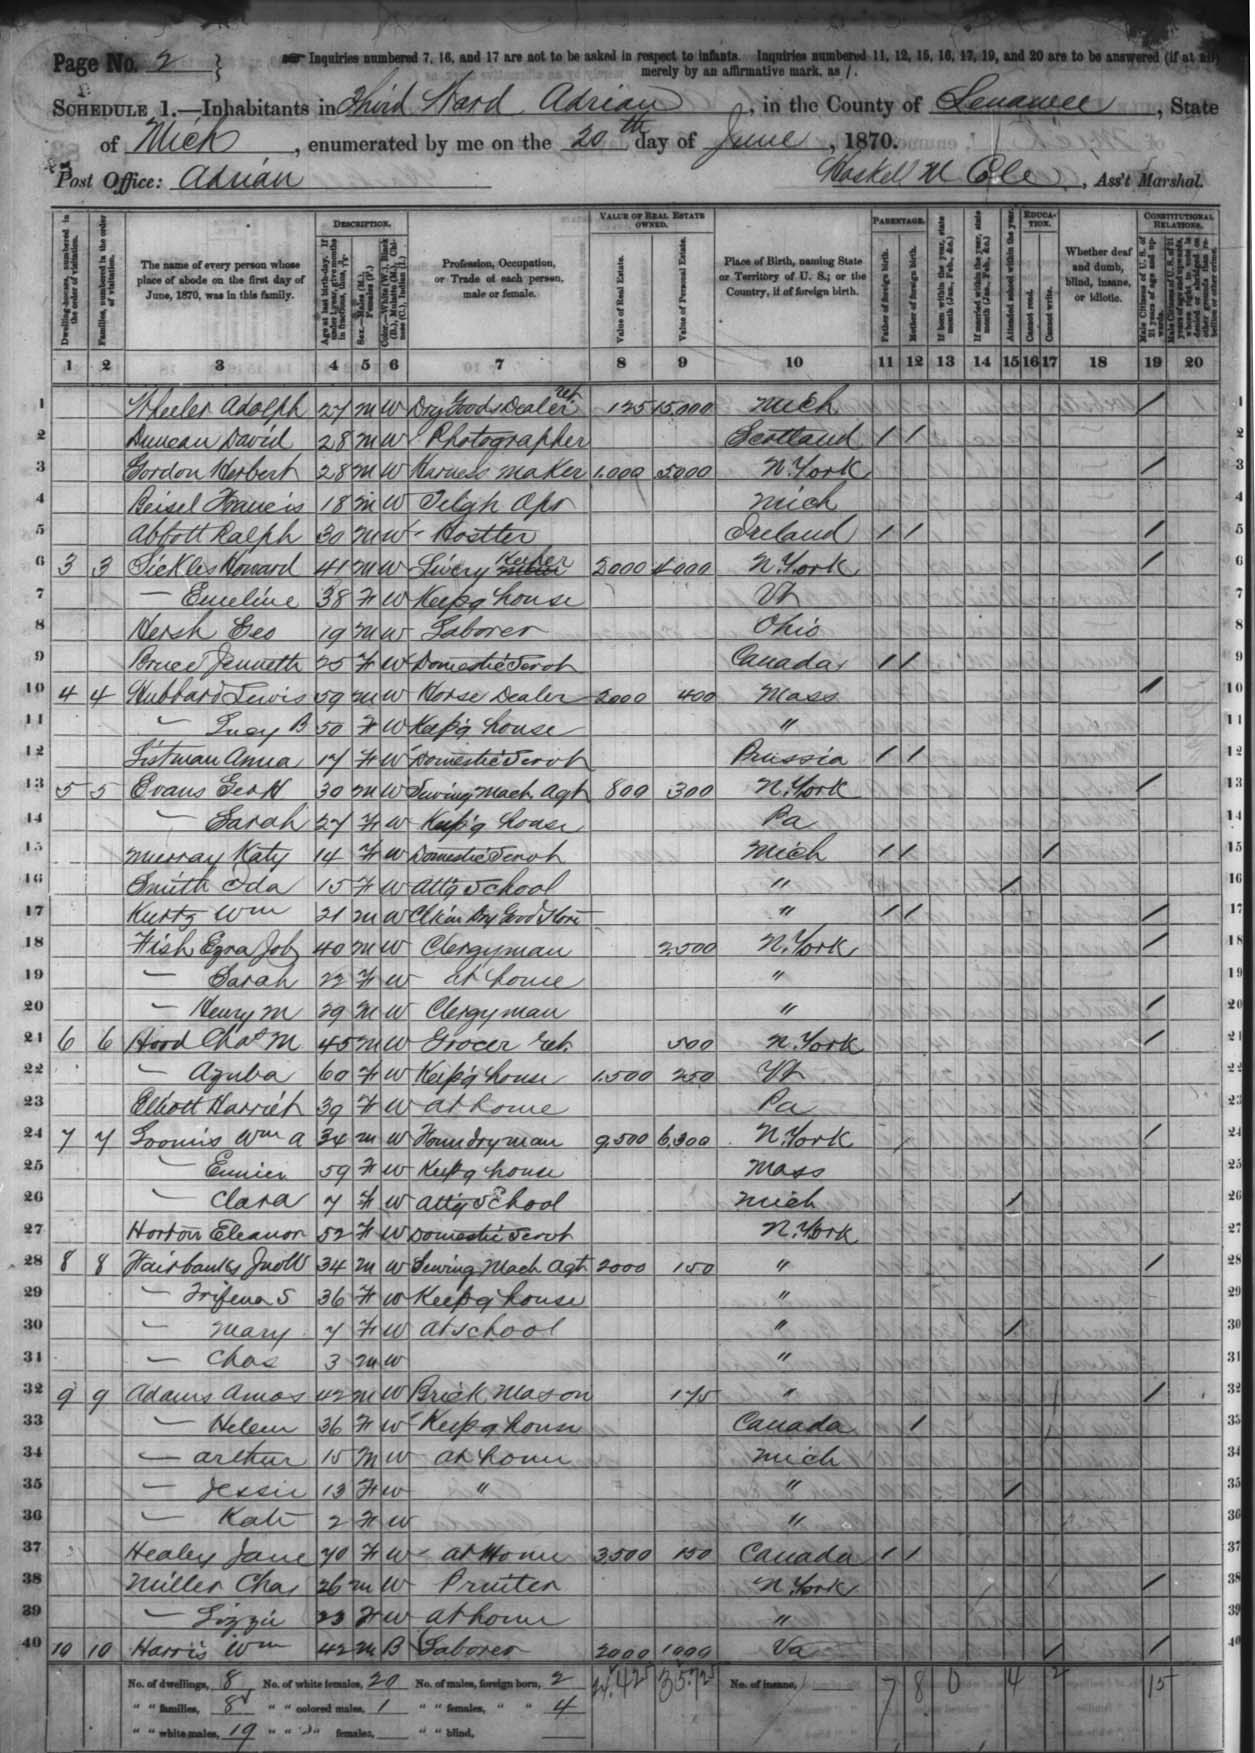 Page No. 2
Inquiries numbered 7, 16, and 17 are not to be asked in respect to infants. Inquiries numbered 11, 12, 15, 16, 17, 19, and 20 are to be answered (if at all)
merely by an affirmative mark, as /.
SCHEDULE 1.—Inhabitants in Third Ward Adrian, in the County of Lenawee, State
of Mich, enumerated by me on the 20th day of June, 1870.
Post Office: Adrian Haskell M Cole, Ass't Marshal.
DESCRIPTION. VALUE OF REAL ESTATE OWNED. PARENTAGE. EDUCATION. CONSTITUTIONAL RELATIONS.
Dwelling-houses, numbered in the order of visitation.
Families, numbered in the order of visitation.
The name of every person whose place of abode on the first day of June, 1870, was in this family.
Age at last birth-day. If under 1 year, give months in fractions, thus, 3/12
Sex.—Males (M.), Females (F.)
Color.—White (W.), Black (B.), Mulatto (M.), Chinese (C.), Indian (I.)
Profession, Occupation, or Trade of each person, male or female.
Value of Real Estate.
Value of Personal Estate.
Place of Birth, naming State or Territory of U. S.; or the Country, if of foreign birth.
Father of foreign birth.
Mother of foreign birth.
If born within the year, state month (Jan., Feb., &c.)
If married within the year, state month (Jan., Feb., &c.)
Attended school within the year.
Cannot read.
Cannot write.
Whether deaf and dumb, blind, insane, or idiotic.
Male Citizens of U. S. of 21 years of age and upwards.
Male Citizens of U. S. of 21 years of age and upwards, whose right to vote is denied or abridged on other grounds than rebellion or other crime.
1 2 3 4 5 6 7 8 9 10 11 12 13 14 15 16 17 18 19 20
1 Wheeler Adolph 27 M W Dry Goods Dealer ret 125 15,000 Mich / 1
2 Duncan David 28 M W Photographer Scotland / / 2
3 Gordon Herbert 28 M W Harness Maker 1,000 5000 N. York / 3
4 Beisel Francis 18 M W Telgh Opr Mich 4
5 Abbott Ralph 30 M W Hostler Ireland / / / 5
6 3 3 Sickles Howard 41 M W Livery Keeper 2000 4000 N. York / 6
7 — Emeline 38 F W Keep'g house Vt 7
8 Hersh Geo 19 M W Laborer Ohio 8
9 Bruce Jenneth 25 F W Domestic Servt Canada / / 9
10 4 4 Hubbard Lewis 59 M W Horse Dealer 2000 400 Mass / 10
11 — Lucy B 50 F W Keep'g house " 11
12 Listman Anna 17 F W Domestic Servt Prussia / / 12
13 5 5 Evans Geo H 30 M W Sewing Mach. Agt 800 300 N. York / 13
14 — Sarah 27 F W Keep'g house Pa 14
15 Murray Katy 14 F W Domestic Servt Mich / / / 15
16 Smith Ida 15 F W Att'g School " / 16
17 Kurtz Wm 21 M W Clk in Dry Good Store " / / / 17
18 Fish Ezra Job 40 M W Clergyman 2,500 N. York / 18
19 — Sarah 22 F W at home " 19
20 — Henry M 29 M W Clergyman " / 20
21 6 6 Hood Chas M 45 M W Grocer Ret. 500 N. York / 21
22 — Azuba 60 F W Keep'g house 1,500 250 Vt 22
23 Elliott Harriet 39 F W at home Pa 23
24 7 7 Loomis Wm A 34 M W Foundryman 9,500 6,300 N. York / 24
25 — Eunice 59 F W Keep'g house Mass 25
26 — Clara 7 F W Att'g School Mich / 26
27 Horton Eleanor 52 F W Domestic Servt N. York 27
28 8 8 Fairbanks Jno W 34 M W Sewing Mach Agt 2000 150 " / 28
29 — Trifena S 36 F W Keep'g house " 29
30 — Mary 7 F W At School " / 30
31 — Chas 3 M W " 31
32 9 9 Adams Amos 42 M W Brick Mason 175 " / 32
33 — Helen 36 F W Keep'g house Canada / 33
34 — Arthur 15 M W at home Mich 34
35 — Jessie 13 F W " " / 35
36 — Kate 2 F W " 36
37 Healey Jane 70 F W at Home 3,500 150 Canada / / 37
38 Miller Chas 26 M W Printer N York / 38
39 — Lizzie 23 F W at home " 39
40 10 10 Harris Wm 42 M B Laborer 2000 1000 Va / / 40
No. of dwellings, 8 No. of white females, 20 No. of males, foreign born, 2 35,725 No. of insane, 7 8 0 4 2 15
" " families, 8 " " colored males, 1 " " females, " " 4
" " white males, 19 " " " females, " " blind,